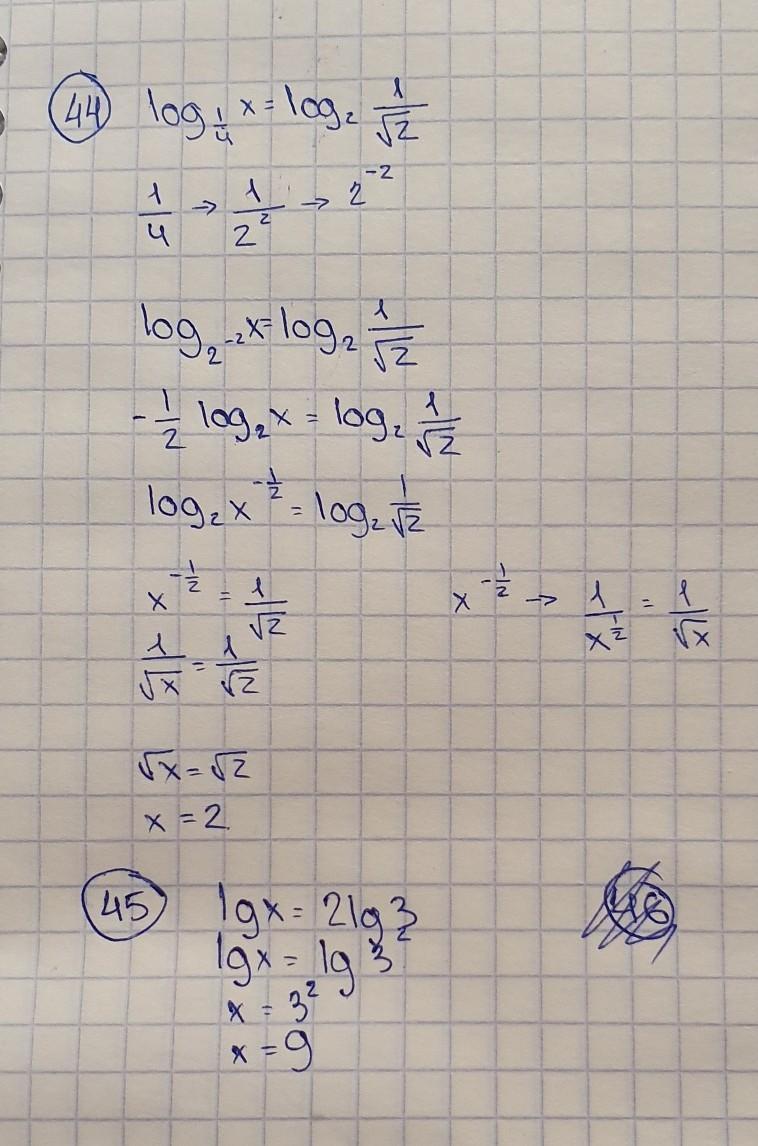 44 log_{1/4} x = log₂ 1/√2
1/4 → 1/2² → 2⁻²
log_{2⁻²} x = log₂ 1/√2
-1/2 log₂ x = log₂ 1/√2
log₂ x^{-1/2} = log₂ 1/√2
x^{-1/2} = 1/√2
x^{-1/2} → 1/x^{1/2} = 1/√x
1/√x = 1/√2
√x = √2
x = 2
45 lgx = 2lg3
46
lgx = lg3²
x = 3²
x = 9